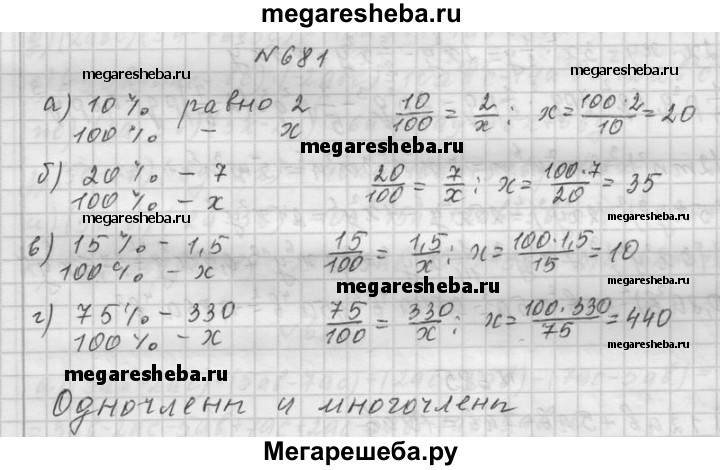 megaresheba.ru
№681
megaresheba.ru megaresheba.ru
а) 10% равно 2 10/100 = 2/x; x = 100·2/10 = 20
100% – x
megaresheba.ru
б) 20% – 7 20/100 = 7/x; x = 100·7/20 = 35
100% – x
megaresheba.ru megaresheba.ru
в) 15% – 1,5 15/100 = 1,5/x; x = 100·1,5/15 = 10
100% – x
megaresheba.ru
г) 75% – 330 75/100 = 330/x; x = 100·330/75 = 440
100% – x
megaresheba.ru
megaresheba.ru
Одночлени и многочлени
Мегарешеба.ру